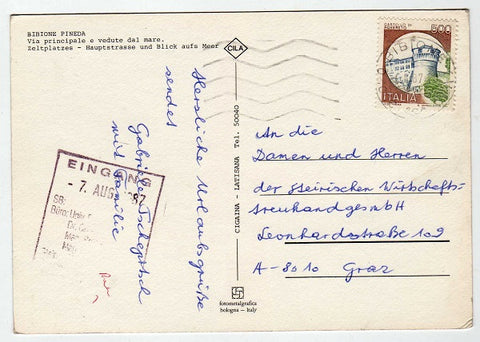 BIBIONE PINEDA
Via principale e vedute dal mare.
Zeltplatzes - Hauptstrasse und Blick aufs Meer
CILA
500
ITALIA
Herzliche Urlaubsgrüße
sendet
Gabriele
mit Familie
EINGANG
- 7. AUG. 1987
SB:
Büro:
CIGAINA - LATISANA Tel. 50040
An die
Damen und Herren
der Steirischen Wirtschafts-
treuhandgesmbH
Leonhardstraße 109
A-8010 Graz
fotometalgrafica
bologna - italy